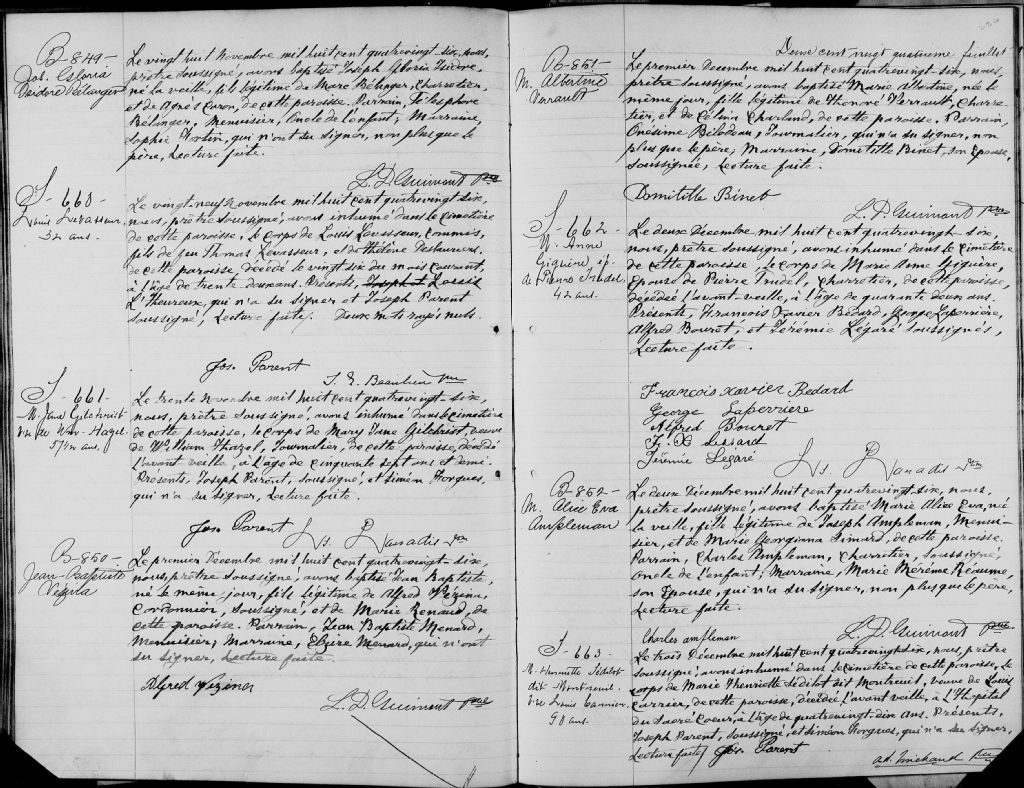 B-849-
Jos. Gloria
Isidore Bélanger
Le vingt huit Novembre mil huit cent quatrevingt-six, nous,
prêtre soussigné, avons baptisé Joseph Gloria Isidore,
né la veille, fils légitime de Marc Bélanger, Charretier,
et de Agnès Caron, de cette paroisse. Parrain, Télesphore
Bélanger, Menuisier, Oncle de l'enfant, Marraine,
Sophie Fortin, qui n'ont su signer, non plus que le
père, Lecture faite.
L. D. Guimont Ptre
S- 660-
Louis Levasseur
32 ans.
Le vingt-neuf Novembre mil huit cent quatrevingt six,
nous, prêtre soussigné, avons inhumé dans le cimetière
de cette paroisse, le corps de Louis Levasseur, Commis,
fils de feu Thomas Levasseur, et de Hélène Deslauriers,
de cette paroisse, décédé le vingt six du mois courant,
à l'âge de trente deux ans. Présents, Joseph et Louis
L'Heureux, qui n'a su signer et Joseph Parent
soussigné, Lecture faite. Deux mots rayés nuls.
Jos. Parent
Ptre
S- 661-
M. Jane Gilchrist
Vve de Wm. Hazel
57½ ans.
Le trente Novembre mil huit cent quatrevingt six,
nous, prêtre soussigné, avons inhumé dans le cimetière
de cette paroisse, le corps de Mary Jane Gilchrist, veuve
de William Hazel, Journalier, de cette paroisse, décédé
l'avant veille, à l'âge de cinquante sept ans et demi.
Présents, Joseph Parent, soussigné, et Siméon Gorgues,
qui n'a su signer, Lecture faite.
Jos. Parent
B-850-
Jean-Baptiste
Vézina
Le premier Décembre mil huit cent quatrevingt-six,
nous, prêtre soussigné, avons baptisé Jean Baptiste,
né le même jour, fils légitime de Alfred Vézina,
Cordonnier, soussigné, et de Marie Renaud, de
cette paroisse. Parrain, Jean Baptist Menard,
Menuisier; Marraine, Menard, qui n'ont
su signer, Lecture faite.
Alfred Vézina
L. D. Guimont Ptre
Deux cent vingt feuillet
B-851-
M. Albertine
Perrault
Le premier Décembre mil huit cent quatrevingt-six, nous,
prêtre soussigné, avons baptisé Marie Albertine, née le
même jour, fille légitime de Honoré Perrault, Charre-
tier, et de Célina Charland, de cette paroisse. Parrain,
Onésime Bilodeau, Journalier, qui n'a su signer, non
plus que le père; Marraine, Domitille Binet, son épouse,
soussignée; Lecture faite.
Domitille Binet
L. D. Guimont Ptre
S- 662-
M. Anne
Giguère, ép.
de Pierre Trudel
42 ans.
Le deux Décembre mil huit cent quatrevingt-six
nous, prêtre soussigné, avons inhumé dans le cimetière
de cette paroisse, le corps de Marie Anne Giguère,
Epouse de Pierre Trudel, Charretier, de cette paroisse,
décédée l'avant-veille, à l'âge de quarante deux ans.
Présents, François Xavier Bédard, George Laperrière,
Alfred Bouret, et Jérémie Légaré soussignés,
Lecture faite.
François Xavier Bedard
George Laperriere
Alfred Bouret
F. X
Jérémie Legaré
B-852-
M. Alice Eva
Ampleman
Le deux Décembre mil huit cent quatrevingt-six, nous,
prêtre soussigné, avons baptisé Marie Alice Eva, né
la veille, fille légitime de Joseph Ampleman, Menui-
sier, et de Marie Georgiana Simard, de cette paroisse.
Parrain, Charles Ampleman, Charretier, soussigné,
Oncle de l'enfant; Marraine, Marie Réaume,
son Epouse, qui n'a su signer, non plus que le père,
Lecture faite.
Charles ampleman
L. D. Guimont Ptre
S- 663-
M. Henriette Sédilot
dit Montreuil.
Vve Louis Carrier
90 ans.
Le trois Décembre mil huit cent quatrevingt-six, nous, prêtre
soussigné, avons inhumé dans le cimetière de cette paroisse, le
corps de Marie Henriette Sédilot dit Montreuil, veuve de Louis
Carrier, de cette paroisse, décédée l'avant veille, à l'Hôpital
du Sacré Coeur, à l'âge de quatrevingt-dix ans. Présents,
Joseph Parent, soussigné, et Siméon Gorgues, qui n'a su signer,
Lecture faite. Jos. Parent